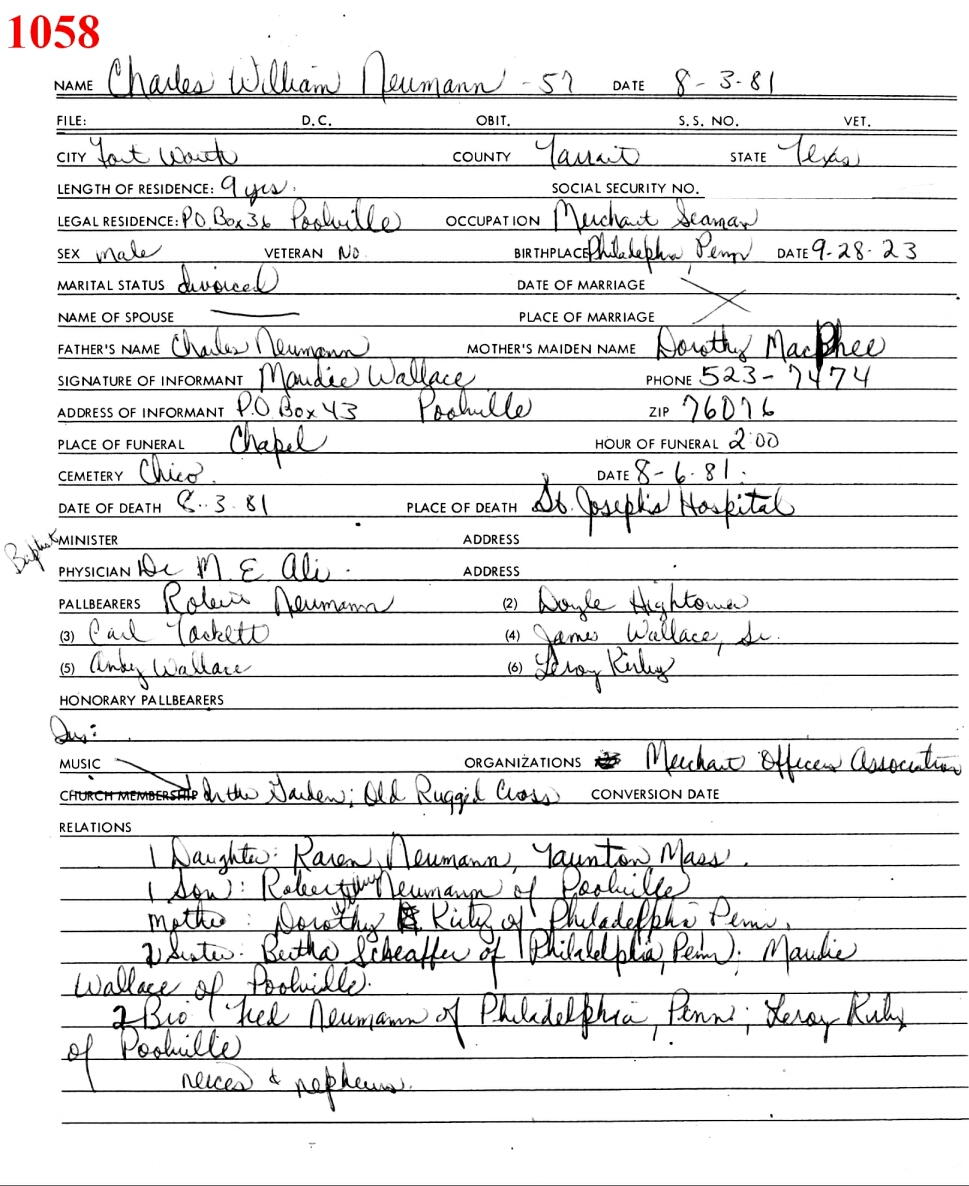 1058
NAME Charles William Neumann - 57 DATE 8-3-81
FILE: D.C. OBIT. S.S. NO. VET.
CITY Fort Worth COUNTY Tarrant STATE Texas
LENGTH OF RESIDENCE: 9 yrs. SOCIAL SECURITY NO.
LEGAL RESIDENCE: P.O. Box 36 Poolville OCCUPATION Merchant Seaman
SEX male VETERAN No BIRTHPLACE Philadelphia Penn DATE 9-28-23
MARITAL STATUS divorced DATE OF MARRIAGE
NAME OF SPOUSE PLACE OF MARRIAGE
FATHER'S NAME Charles Neumann MOTHER'S MAIDEN NAME Dorothy MacPhee
SIGNATURE OF INFORMANT Maudie Wallace PHONE 523-7474
ADDRESS OF INFORMANT P.O. Box 43 Poolville ZIP 76076
PLACE OF FUNERAL Chapel HOUR OF FUNERAL 2:00
CEMETERY Chico DATE 8-6-81
DATE OF DEATH 8-3-81 PLACE OF DEATH St. Joseph's Hospital
Baptist MINISTER ADDRESS
PHYSICIAN Dr M. E. Ali ADDRESS
PALLBEARERS Robert Neumann (2) Doyle Hightower
(3) Carl Tackett (4) James Wallace, Sr.
(5) Andy Wallace (6) Leroy Kirby
HONORARY PALLBEARERS
MUSIC ORGANIZATIONS Merchant Officers Association
CHURCH MEMBERSHIP In the Garden; Old Rugged Cross CONVERSION DATE
RELATIONS
1 Daughter: Karen Neumann, Taunton Mass.
1 Son: Robert Neumann of Poolville
Mother: Dorothy Kirby of Philadelphia Penn.
2 Sister: Bertha Scheaffer of Philaldlphia, Penn; Maudie
Wallace of Poolville.
2 Bro: Fred Neumann of Philadelphia, Penn; Leroy Kirby
of Poolville
neices & nephews.